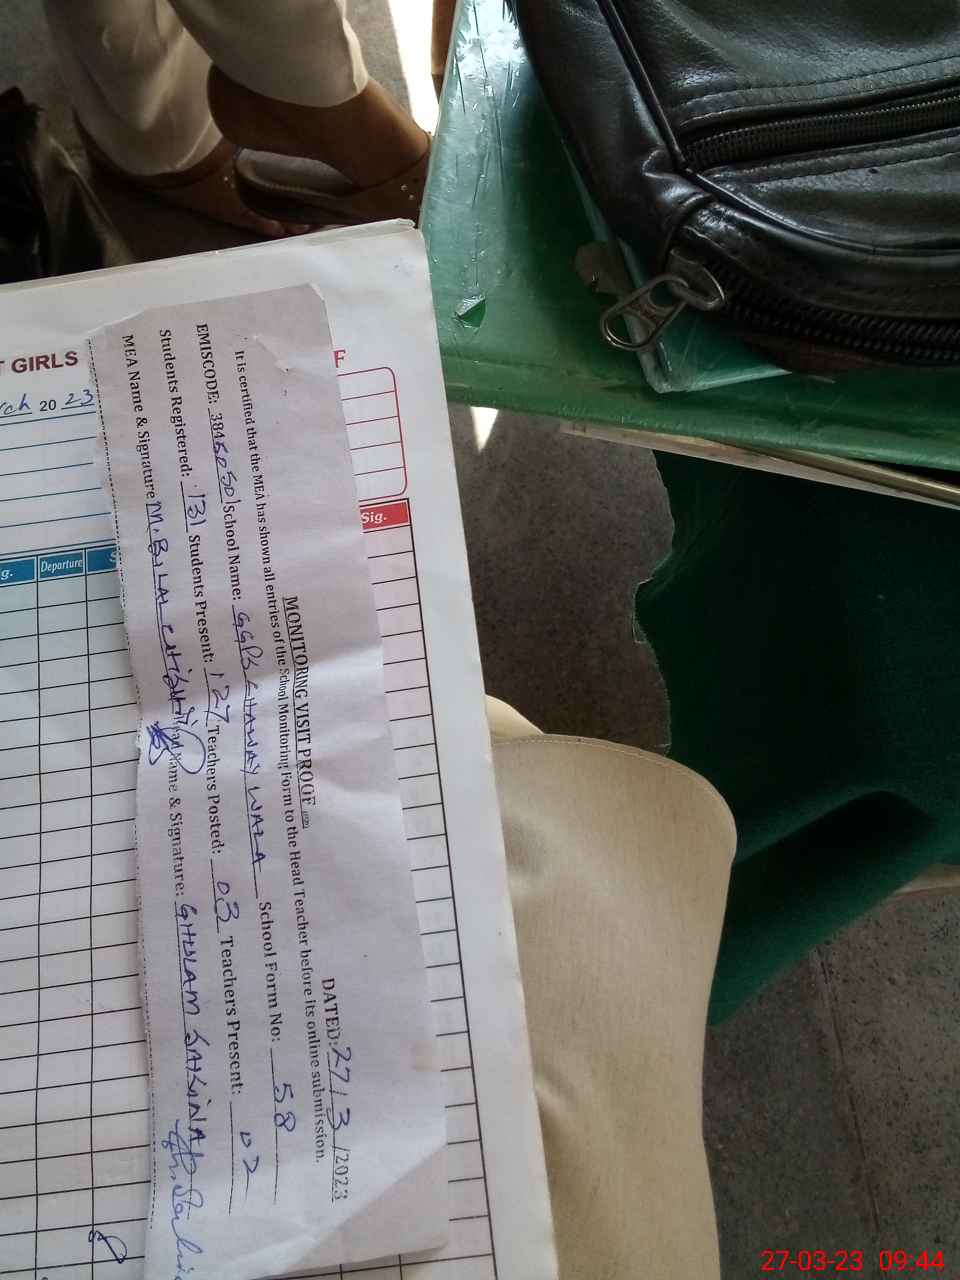 MONITORING VISIT PROOF
DATED: 27/3/2023
It is certified that the MEA has shown all entries of the School Monitoring Form to the Head Teacher before its online submission.
EMISCODE: School Name: GGPS WALA School Form No: 58
Students Registered: 131 Students Present: 127 Teachers Posted: 03 Teachers Present: 02
MEA Name & Signature M. BILAL Name & Signature: GHULAM SAKINA
T GIRLS
rch 20 23
g. Departure S
Ft.
Sig.
27-03-23 09:44